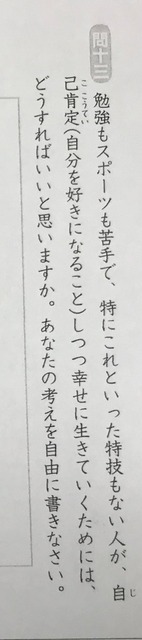 問十三 勉強もスポーツも苦手で、特にこれといった特技もない人が、自
己肯定(自分を好きになること)しつつ幸せに生きていくためには、
どうすればいいと思いますか。あなたの考えを自由に書きなさい。